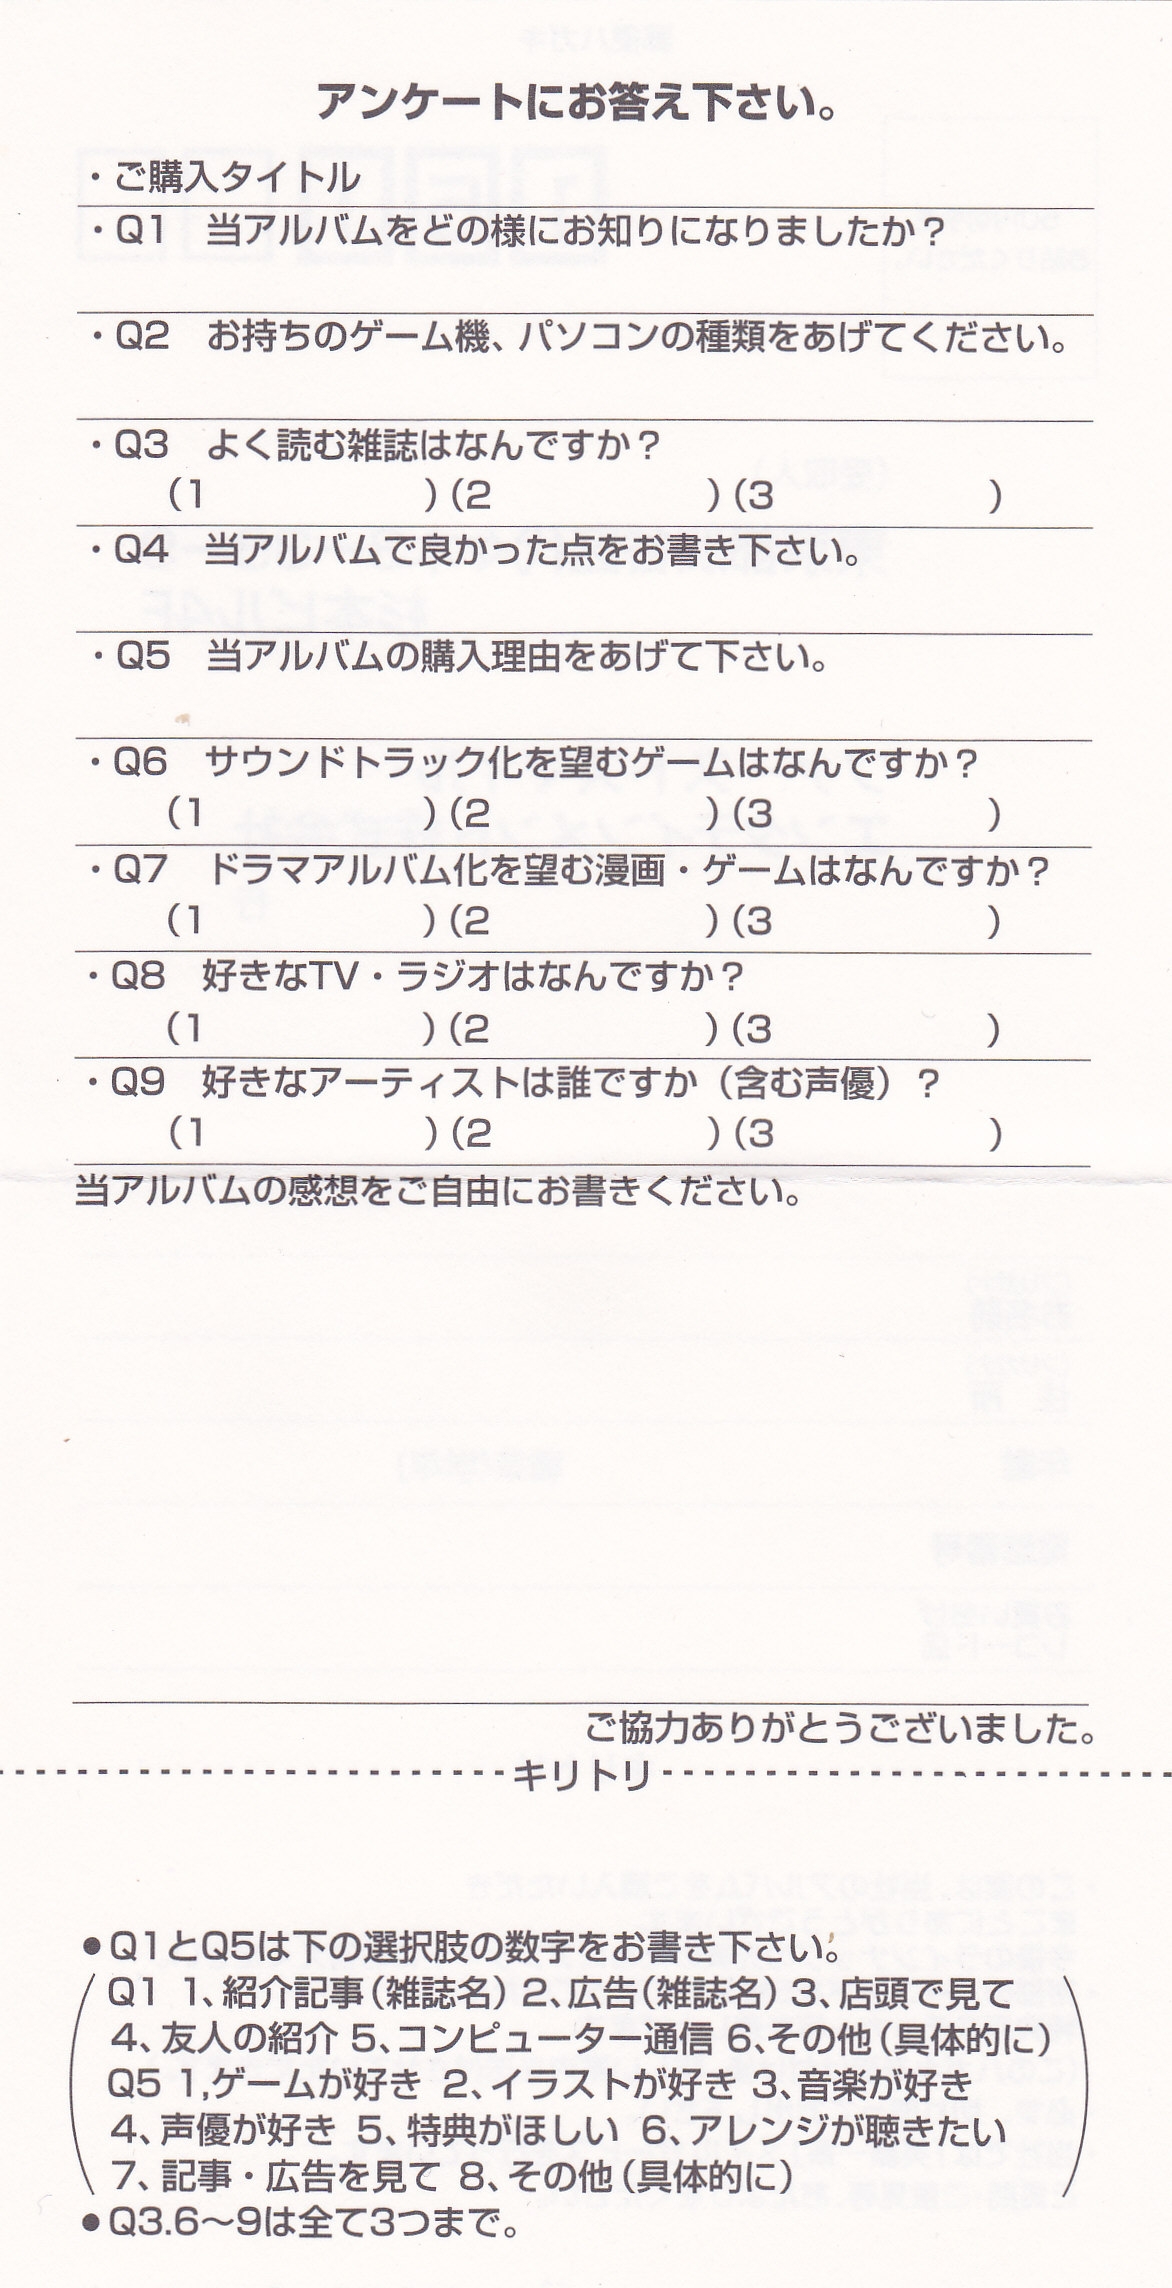 アンケートにお答え下さい。
・ご購入タイトル
・Q1　当アルバムをどの様にお知りになりましたか？
・Q2　お持ちのゲーム機、パソコンの種類をあげてください。
・Q3　よく読む雑誌はなんですか？
（1　　　　　　）（2　　　　　　）（3　　　　　　）
・Q4　当アルバムで良かった点をお書き下さい。
・Q5　当アルバムの購入理由をあげて下さい。
・Q6　サウンドトラック化を望むゲームはなんですか？
（1　　　　　　）（2　　　　　　）（3　　　　　　）
・Q7　ドラマアルバム化を望む漫画・ゲームはなんですか？
（1　　　　　　）（2　　　　　　）（3　　　　　　）
・Q8　好きなTV・ラジオはなんですか？
（1　　　　　　）（2　　　　　　）（3　　　　　　）
・Q9　好きなアーティストは誰ですか（含む声優）？
（1　　　　　　）（2　　　　　　）（3　　　　　　）
当アルバムの感想をご自由にお書きください。
ご協力ありがとうございました。
キリトリ
●Q1とQ5は下の選択肢の数字をお書き下さい。
Q1 1、紹介記事（雑誌名）2、広告（雑誌名）3、店頭で見て
4、友人の紹介 5、コンピューター通信 6、その他（具体的に）
Q5 1,ゲームが好き 2、イラストが好き 3、音楽が好き
4、声優が好き 5、特典がほしい 6、アレンジが聴きたい
7、記事・広告を見て 8、その他（具体的に）
●Q3.6～9は全て3つまで。